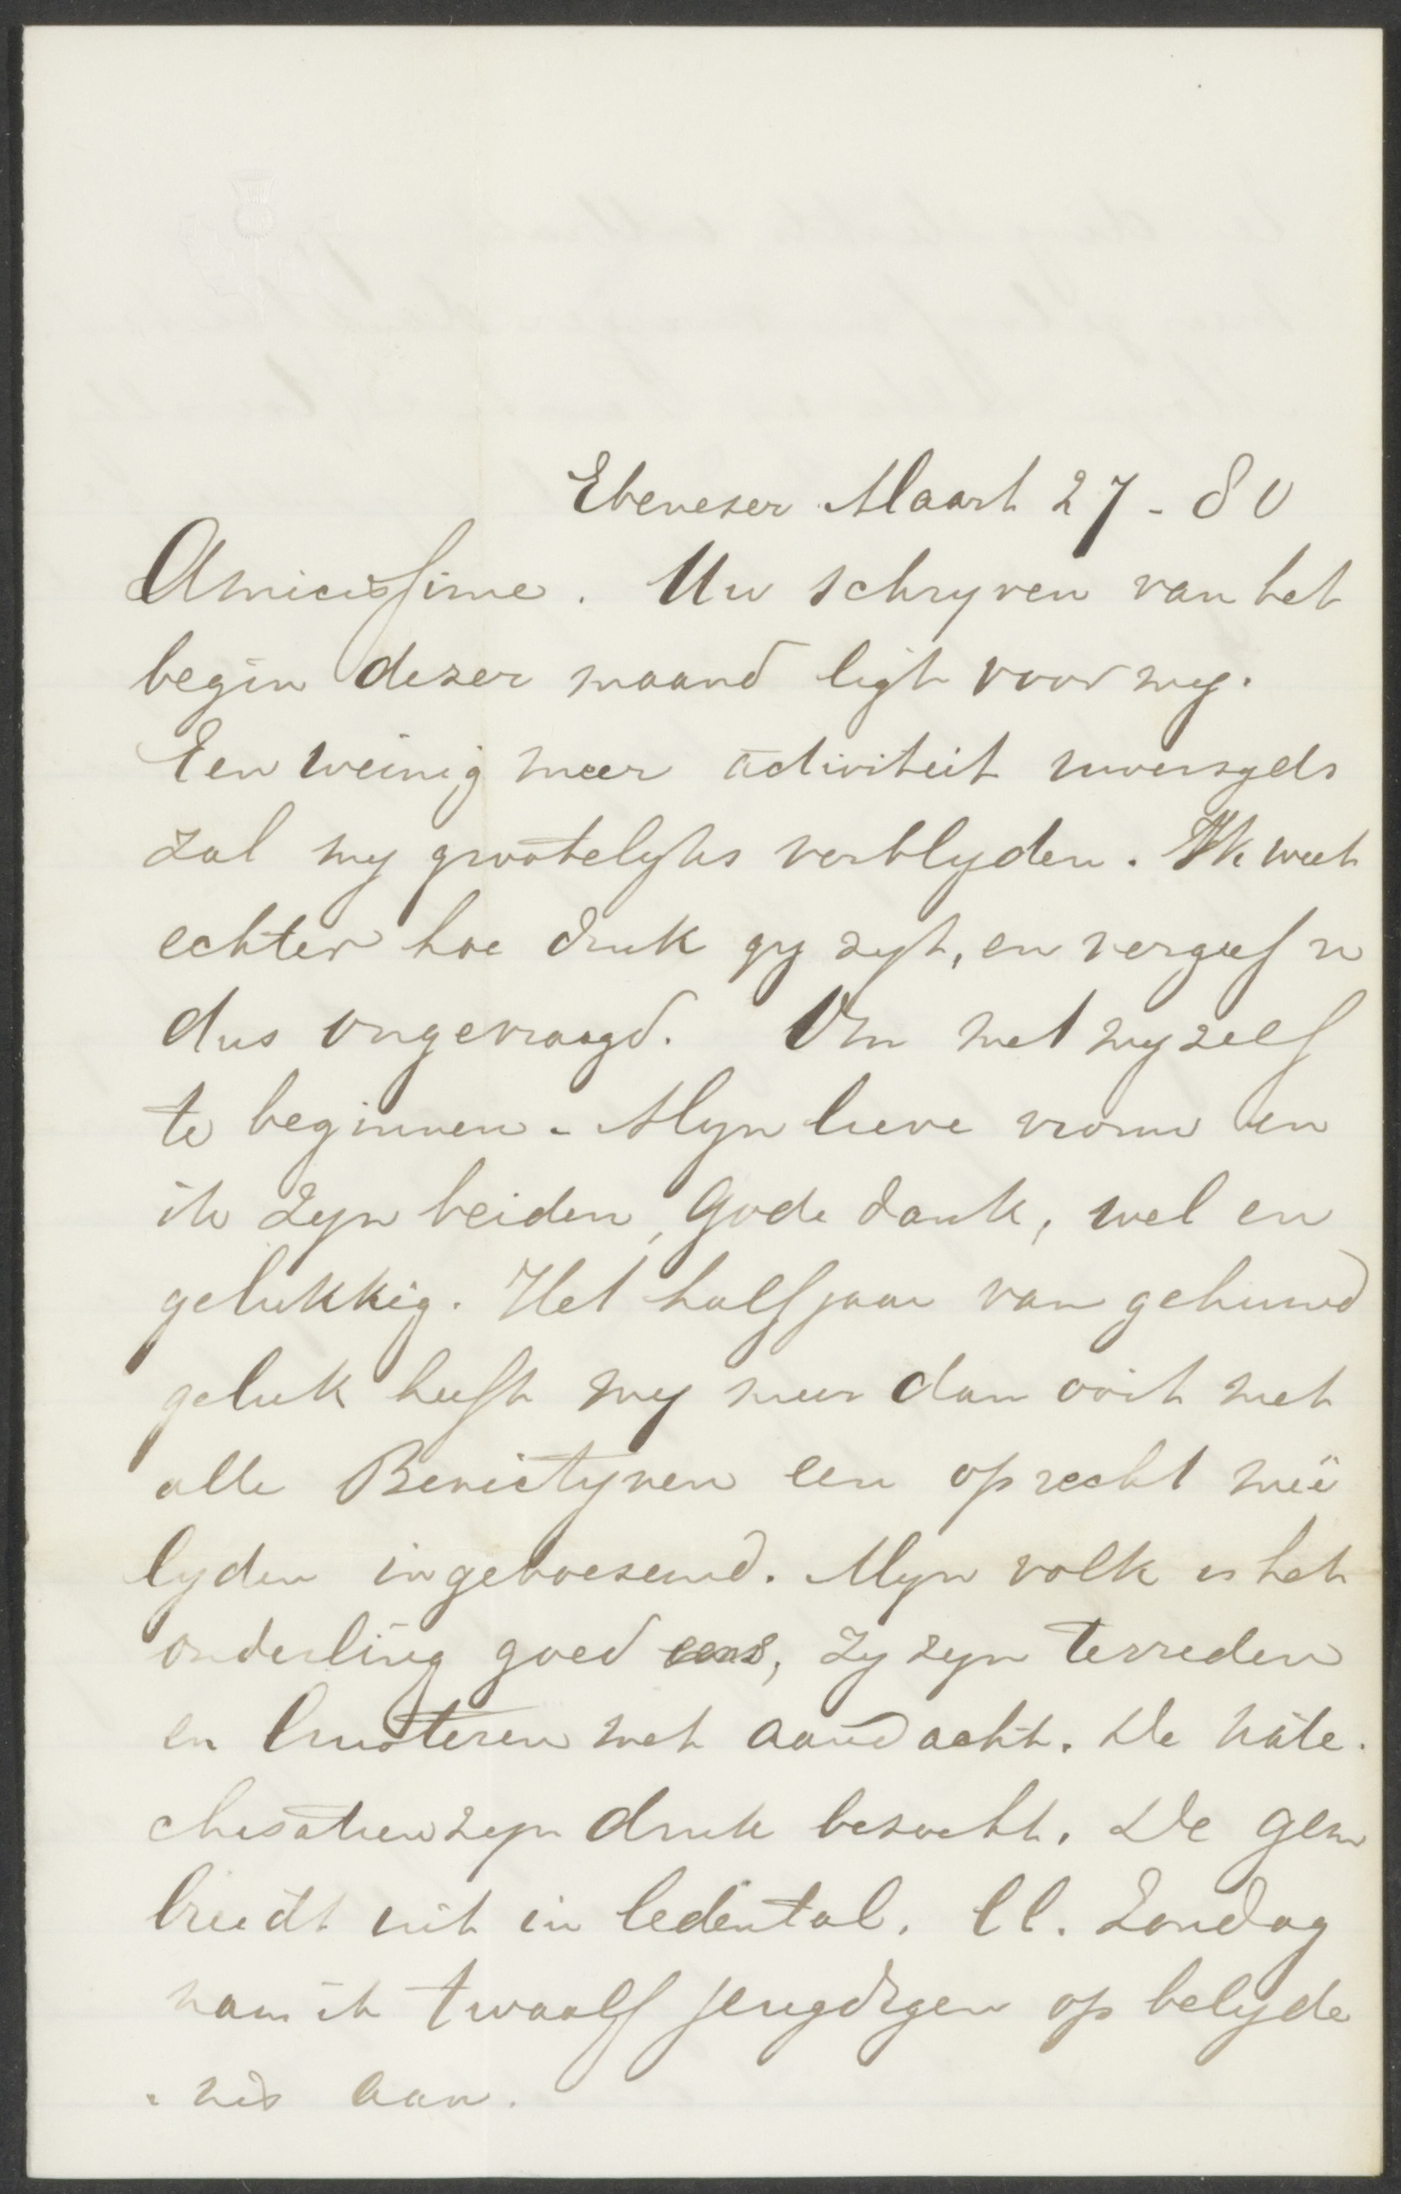 Ebenezer Maart 27 - 80
Amicissime. Uw schryven van het
begin dezer maand ligt voor my.
Een weinig meer activiteit uwerzyds
zal my grootelyks verblyden. Ik weet
echter hoe druk gy zyt, en vergeef u
dus ongevraagd. Om met my zelf
te beginnen - Myn lieve vrouw en
ik zyn beiden, Gode dank, wel en
gelukkig. Het half jaar van gehuwd
geluk heeft my meer dan ooit met
alle een oprecht meë
lyden ingeboezemd. Myn volk is het
onderling goed eens, zy zyn tevreden
en luisteren met aandacht. De kate-
chesatien zyn druk bezocht. De gem
breidt uit in ledental. ll. Zondag
nam ik twaalf jeugdigen op belyde
-nis aan.